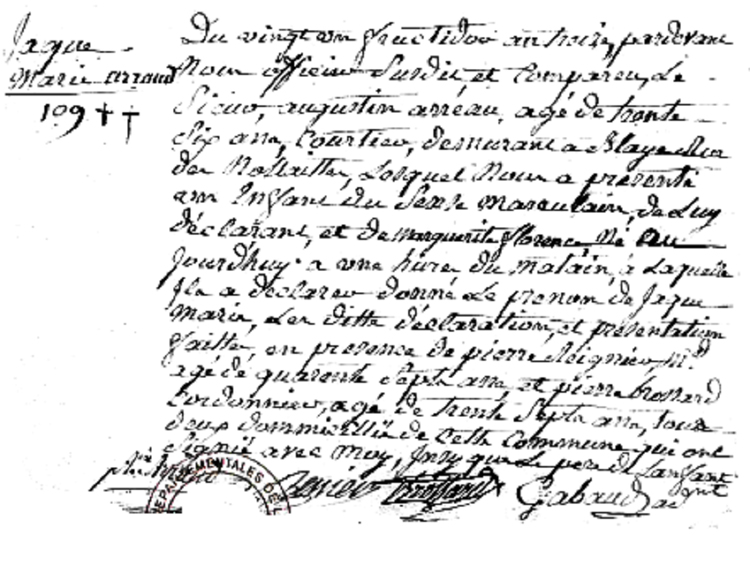 Jaque
Marie arraud
109 ††
Du vingt un fructidor an treize, pardevant
Nous officier Susdit, et Compareu, Le
Sieur, augustin arréau, agé de trente
Six ans, Courtier, demurant a Blaye Rue
des, Lesquel Nous a présenté
un Enfant du Sexse Masculain, de Luy
déclarant, et de Marguerite florence Né au
Jourdhuy a une hure du matain, a Laquelle
Il a déclarer donné Le prenom de Jaque
Marie, Les ditte déclaration, et présentation
faitte, en presence de pierre
agé de quarente Septs ans, et pierre Brossard
Cordonnier, agé de trente Septs ans, tous
deux dommicillié de Cette Commune qui ont
Signié avec Moy, Insy que Le pere de Lanfant
EPARTEMENTALES DE L
Brossard
Gabaud